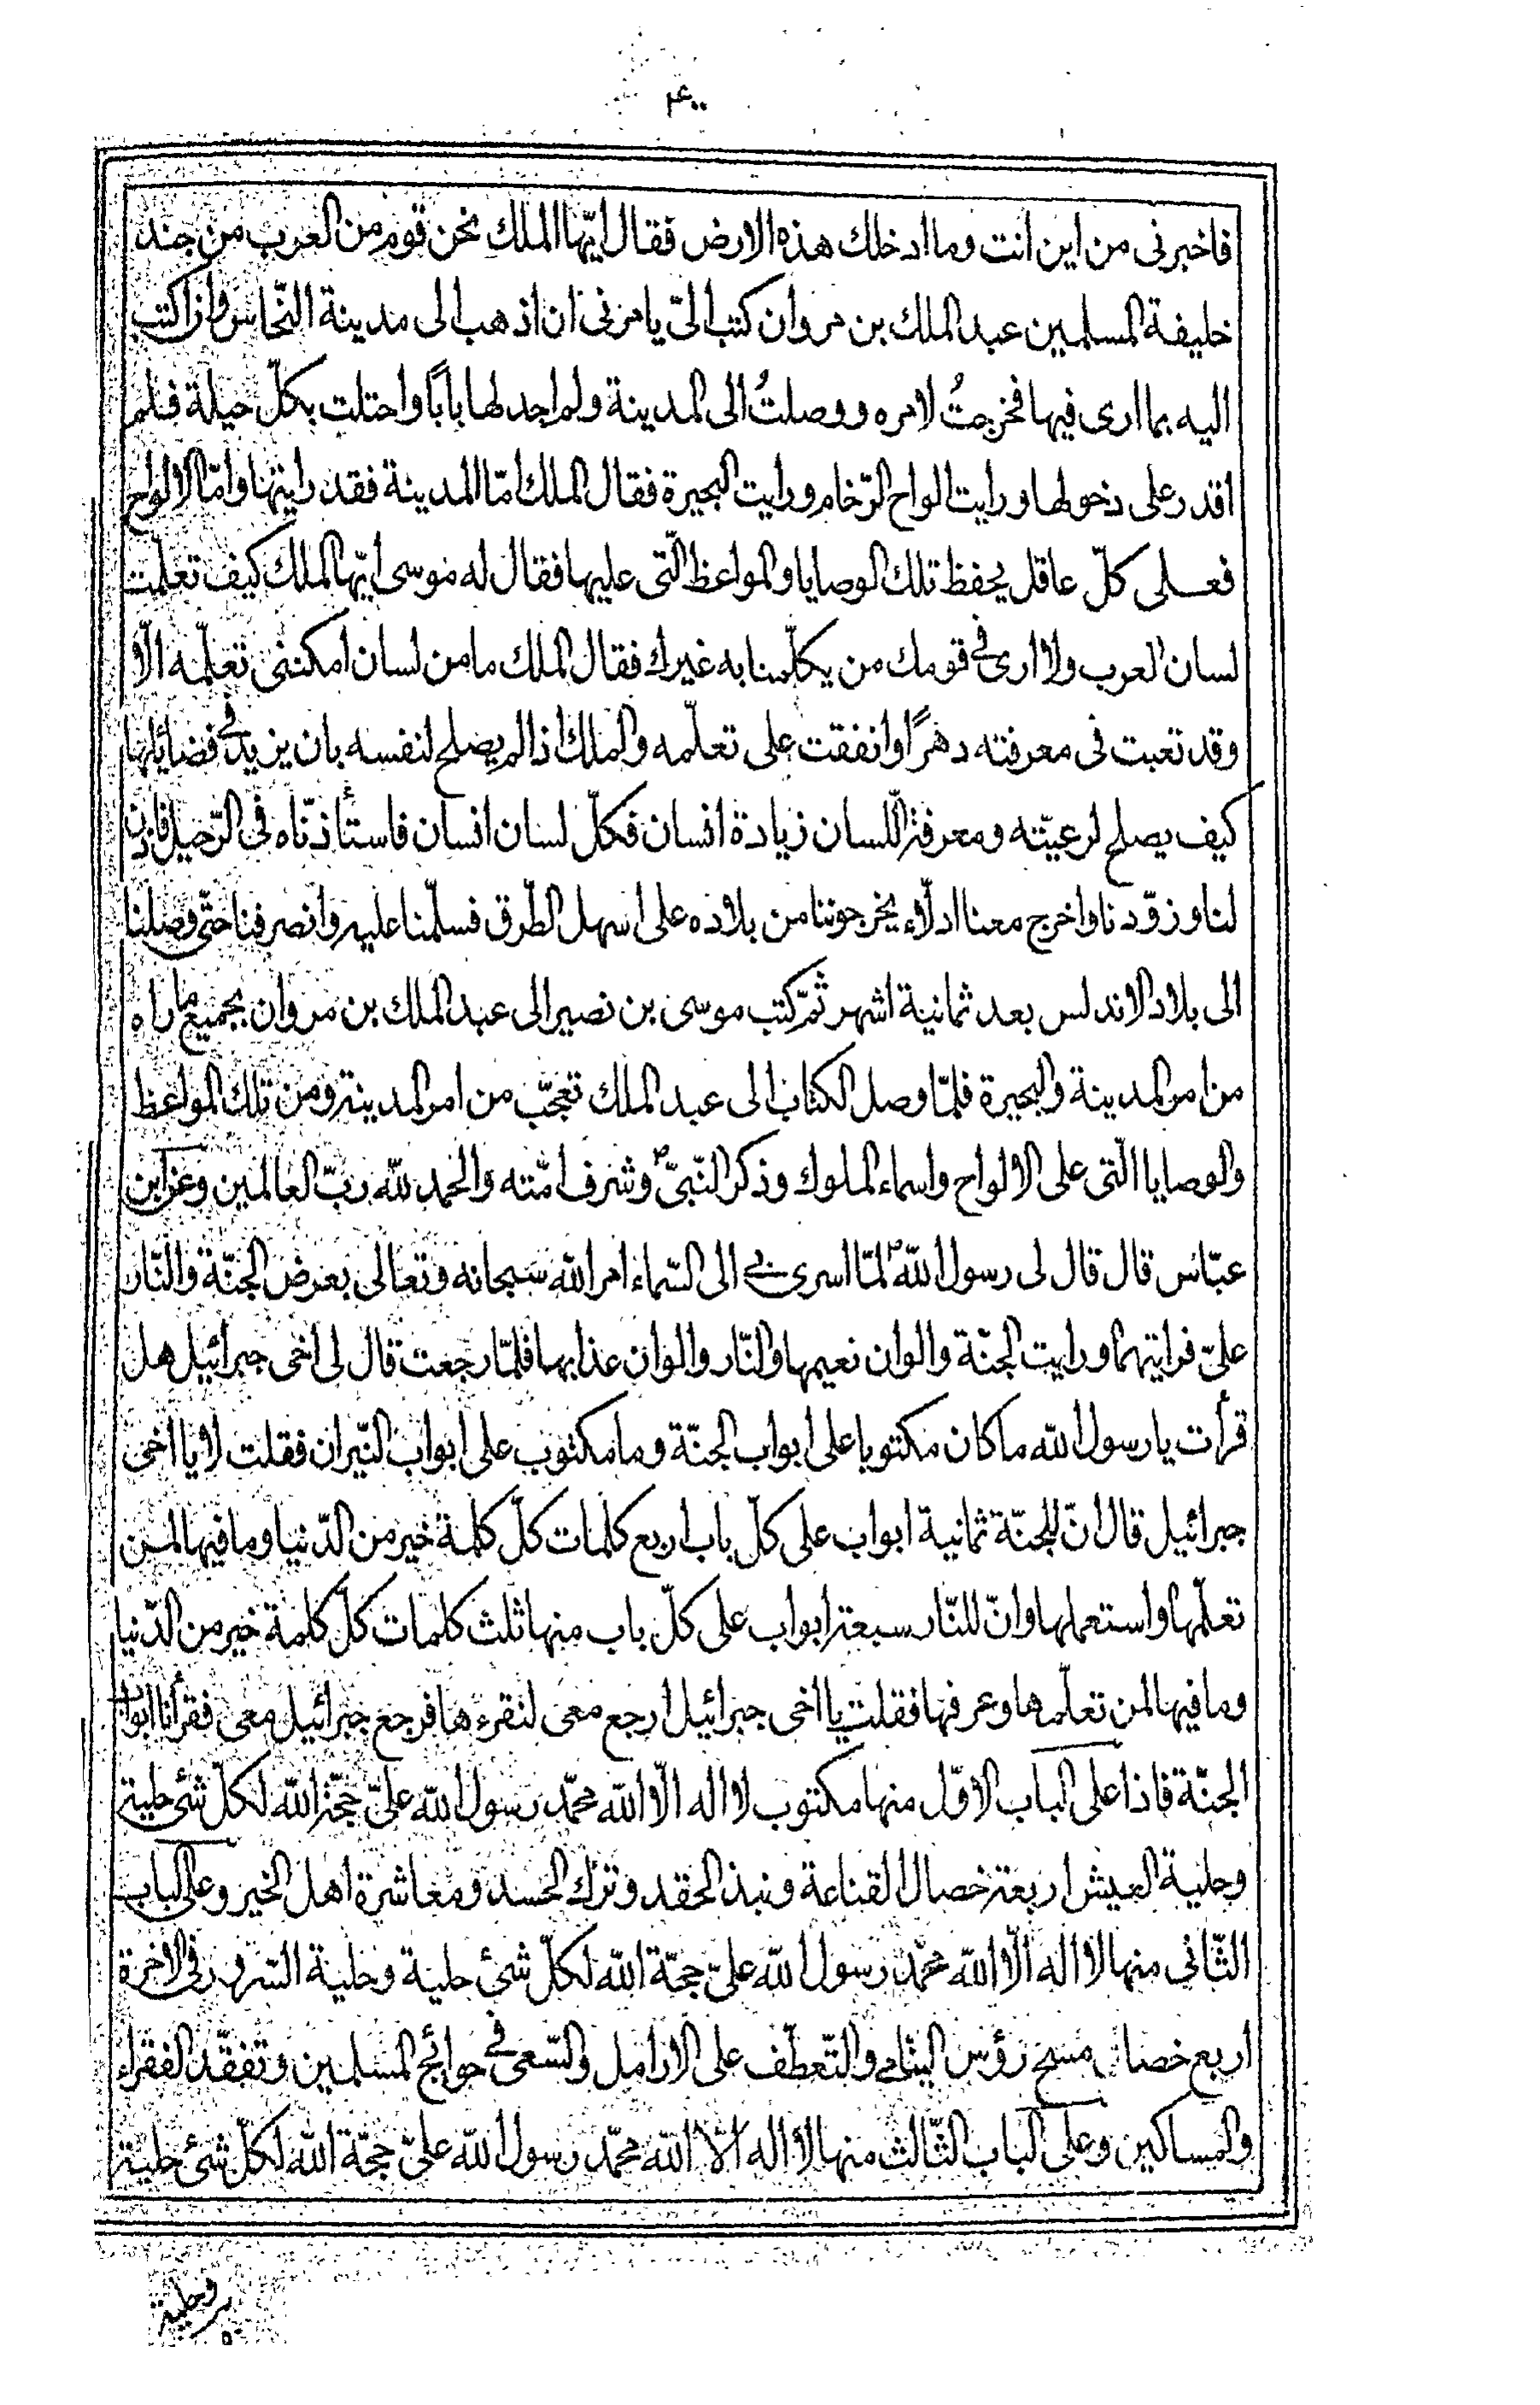 ۴۰۰
فاخبرنى من اين انت وما ادخلك هذه الارض فقال ايّها الملك نحن قوم من العرب من جند
خليفة المسلمين عبد الملك بن مروان كتب الىّ يامرنى ان اذهب الى مدينة النّحاس وان اكتب
اليه بما ارى فيها فخرجتُ لامره ووصلتُ الى المدينة ولم اجد لها باباً واحتلت بكلّ حيلة فلم
اقدر على دخولها ورايت الواح الرّخام ورايت البحيرة فقال الملك امّا المدينة فقد رايتها وامّا الالواح
فعلى كلّ عاقل يحفظ تلك الوصايا والمواعظ الّتى عليها فقال له موسى ايّها الملك كيف تعلّمت
لسان العرب ولا ارى فى قومك من يكلّمنا به غيرك فقال الملك ما من لسان امكننى تعلّمه الّا
وقد تعبت فى معرفته دهراً وانفقت على تعلّمه والملك اذا لم يصلح لنفسه بان يزيد فى فضائلها
كيف يصلح لرعيّته ومعرفة اللّسان زيادة انسان فكلّ لسان انسان فاستأذنّاه فى الرّحيل فاذن
لنا وزوّدنا واخرج معنا ادلّاء يخرجوننا من بلاده على اسهل الطّرق فسلّمنا عليه وانصرفنا حتّى وصلنا
الى بلاد الاندلس بعد ثمانية اشهر ثمّ كتب موسى بن نصير الى عبد الملك بن مروان بجميع ما راه
من امر المدينة والبحيرة فلمّا وصل الكتاب الى عبد الملك تعجّب من امر المدينة ومن تلك المواعظ
والوصايا الّتى على الالواح واسماء الملوك وذكر النّبىّ ص وشرف امّته والحمد للّه ربّ العالمين وعن ابن
عبّاس قال قال لى رسول اللّه ص لمّا اسرى بى الى السّماء امر اللّه سبحانه وتعالى بعرض الجنّة والنّار
علىّ فرايتهما ورايت الجنّة والوان نعيمها والنّار والوان عذابها فلمّا رجعت قال لى اخى جبرائيل هل
قرأت يا رسول اللّه ما كان مكتوبا على ابواب الجنّة وما مكتوب على ابواب النّيران فقلت لا يا اخى
جبرائيل قال انّ للجنّة ثمانية ابواب على كلّ باب اربع كلمات كلّ كلمة خير من الدّنيا وما فيها لمن
تعلّمها واستعملها وانّ للنّار سبعة ابواب على كلّ باب منها ثلث كلمات كلّ كلمة خير من الدّنيا
وما فيها لمن تعلّمها وعرفها فقلت يا اخى جبرائيل ارجع معى لنقرءها فرجع جبرائيل معى فقرأنا ابواب
الجنّة فاذا على الباب الاوّل منها مكتوب لا اله الّا اللّه محمّد رسول اللّه علىّ حجّة اللّه لكلّ شئ حلية
وحلية العيش اربعة خصال القناعة ونبذ الحقد وترك الحسد ومعاشرة اهل الخير وعلى الباب
الثّانى منها لا اله الّا اللّه محمّد رسول اللّه علىّ حجّة اللّه لكلّ شئ حلية وحلية السّرور فى الاخرة
اربع خصال مسح رؤس اليتامى والتّعطّف على الارامل والسّعى فى حوائج المسلمين وتفقّد الفقراء
والمساكين وعلى الباب الثّالث منها لا اله الّا اللّه محمّد رسول اللّه علىّ حجّة اللّه لكلّ شئ حلية
وحلية